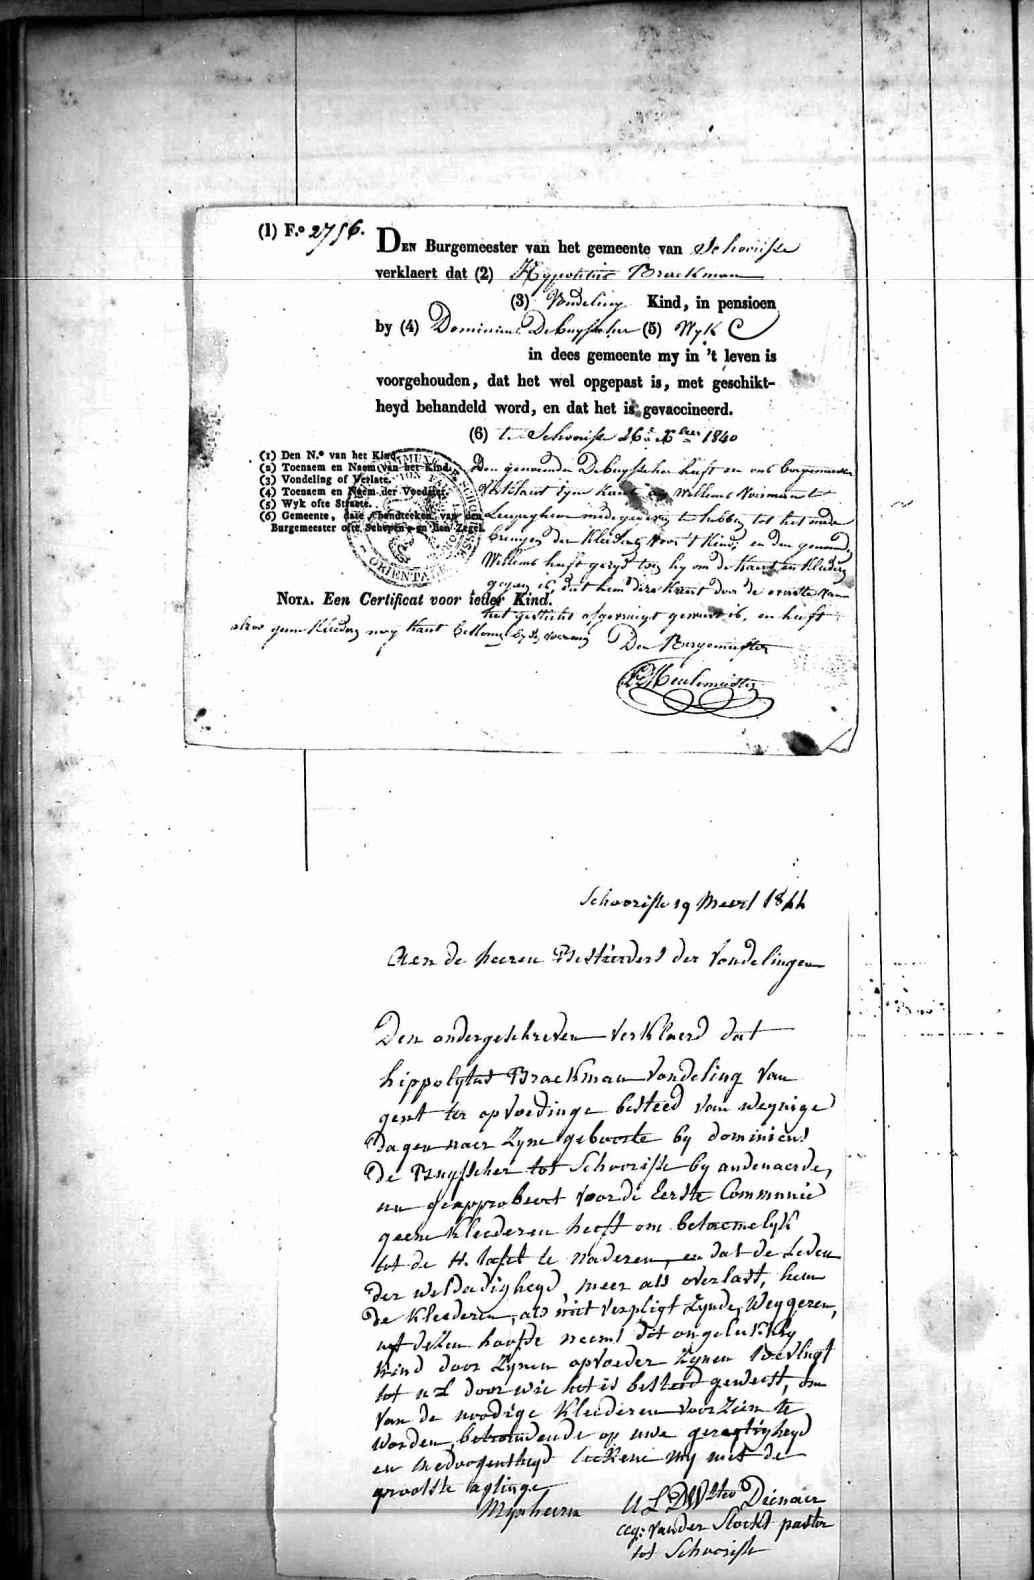 (1) F.º 2756.
DEN Burgemeester van het gemeente van Schoorisse
verklaert dat (2) Hyppolitus Braekman
(3) Vondeling Kind, in pensioen
by (4) Dominicus DeBuysscher (5) Wyk C
in dees gemeente my in 't leven is
voorgehouden, dat het wel opgepast is, met geschikt-
heyd behandeld word, en dat het is gevaccineerd.
(6) te Schoorisse 26 Xber 1840
(1) Den N.º van het Kind.
(2) Toenaem en Naem van het Kind.
(3) Vondeling of Verlate.
(4) Toenaem en Naem der Voedster.
(5) Wyk ofte Straete.
(6) Gemeente, date, handteeken van den
Burgemeester ofte Schepen en den Zegel.
Den genoemden DeBuysscher heeft en ons
zyne Kaert Willems
medegegeven te hebben tot het
brengen der Kleeding voor 't Kind; en den genoemd
Willems heeft gezyd hy om de Kaert en Kleeding
is, dat hem dize Kaert door de
het gesticht afgevraegt geweest is, en heeft
NOTA. Een Certificat voor ieder Kind.
alzoo geene Kleeding nog Kaert
Den Burgemeester
Meulemeester
ORIENTALE
Schoorisse 19 Meert 1844
Aen de heeren Bestierders der Vondelingen
Den ondergeschreven verklaerd dat
hippolytus Braekman vondeling van
gent ter opvoedinge besteed van weynige
dagen naer zyne geboorte by dominicus
De Buysscher tot Schoorisse by audenaerde,
nu geapprobeert voor de Eerste Communie
geene kleederen heeft om betaemelyk
tot de H. tafel te naderen, en dat de Leden
der weldadigheyd, meer als overlast, hem
de kleederen, als niet verpligt zynde, weygeren,
uyt dezen hoofde neemt dit ongelukkig
kind door zynen opvoeder zynen toevlugt
tot u L door wie het is besteed geweest, om
van de noodige kleederen voorzien te
worden, betrouwende op uwe geregtigheyd
en medoogentheyd teekene my met de
grootste agtinge
Mynheeren
U L DW Dienaer
van der Stockt pastor
tot Schoorisse